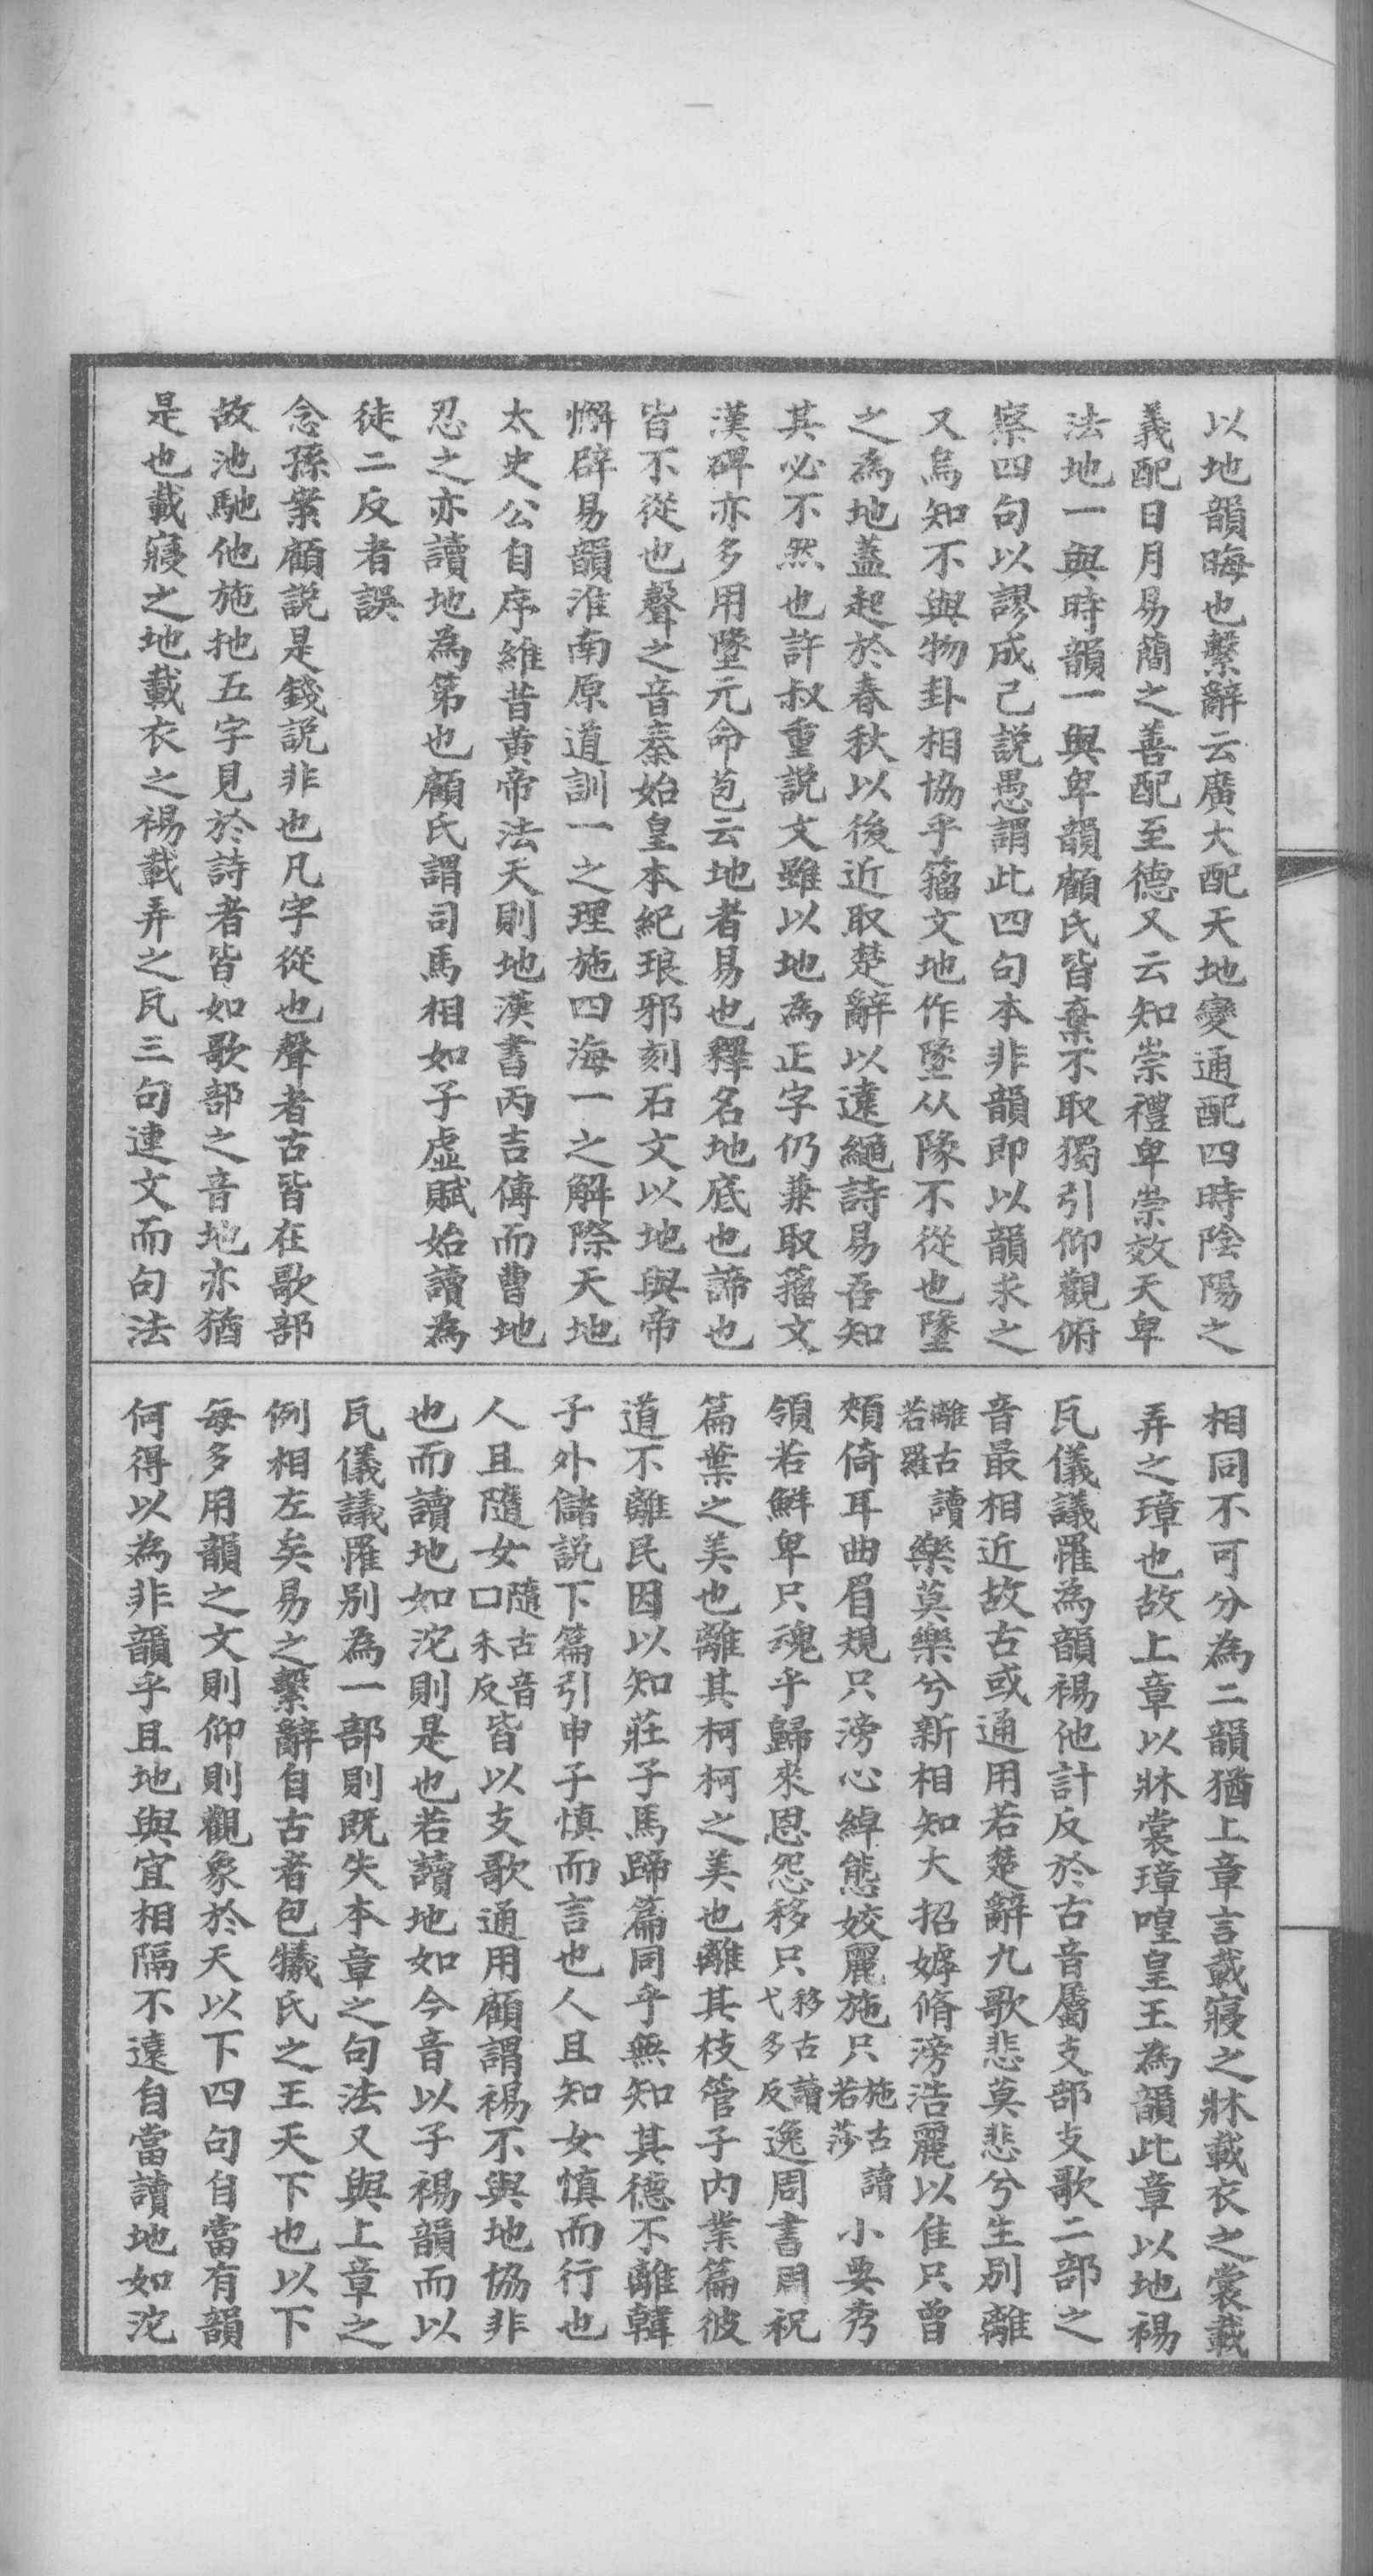 以地韻晦也繫辭云廣大配天地變通配四時陰陽之
義配日月易簡之善配至德又云知崇禮卑崇效天卑
法地一與時韻一與卑韻顧氏皆棄不取獨引仰觀俯
察四句以謬成己説愚謂此四句本非韻即以韻求之
又烏知不與物卦相協乎籀文地作墬从𨸏不從也墬
之為地蓋起於春秋以後近取楚辭以遠繩詩易吾知
其必不然也許叔重説文雖以地為正字仍兼取籀文
漢碑亦多用墬元命苞云地者易也釋名地底也諦也
皆不從也聲之音秦始皇本紀琅邪刻石文以地與帝
懈辟易韻淮南原道訓一之理施四海一之解際天地
太史公自序維昔黄帝法天則地漢書丙吉傳而曹地
忍之亦讀地為第也顧氏謂司馬相如子虛賦始讀為
徒二反者誤
念孫案顧説是錢説非也凡字從也聲者古皆在歌部
故池馳他施扡五字見於詩者皆如歌部之音地亦猶
是也載寢之地載衣之裼載弄之瓦三句連文而句法
相同不可分為二韻猶上章言載寢之牀載衣之裳載
弄之璋也故上章以牀裳璋喤皇王為韻此章以地裼
瓦儀議罹為韻裼他計反於古音屬支部支歌二部之
音最相近故古或通用若楚辭九歌悲莫悲兮生別離
離古讀若羅樂莫樂兮新相知大招嫭脩滂浩麗以佳只曾
頰倚耳曲眉規只滂心綽態姣麗施只施古讀若莎小要秀
領若鮮卑只魂乎歸來思怨移只移古讀弋多反逸周書周祝
篇葉之美也離其柯柯之美也離其枝管子内業篇彼
道不離民因以知莊子馬蹄篇同乎無知其德不離韓
子外儲説下篇引申子慎而言也人且知女慎而行也
人且隨女隨古音口禾反皆以支歌通用顧謂裼不與地協非
也而讀地如沱則是也若讀地如今音以子裼韻而以
瓦儀議罹別為一部則既失本章之句法又與上章之
例相左矣易之繫辭自古者包犧氏之王天下也以下
每多用韻之文則仰則觀象於天以下四句自當有韻
何得以為非韻乎且地與宜相隔不遠自當讀地如沱